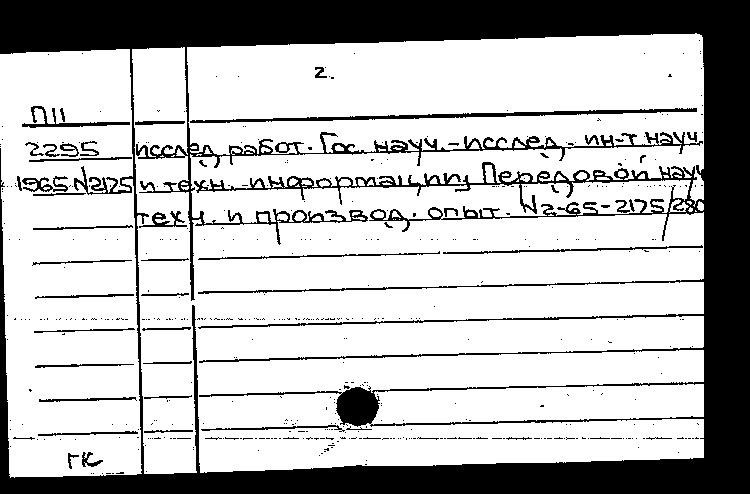 2.
П11
2295 исслед. работ. Гос. науч.-исслед. ин-т науч.
1965 N2175 и техн. информации, Передовой науч
техн. и производ. опыт. N2-65-2175/280
ГК